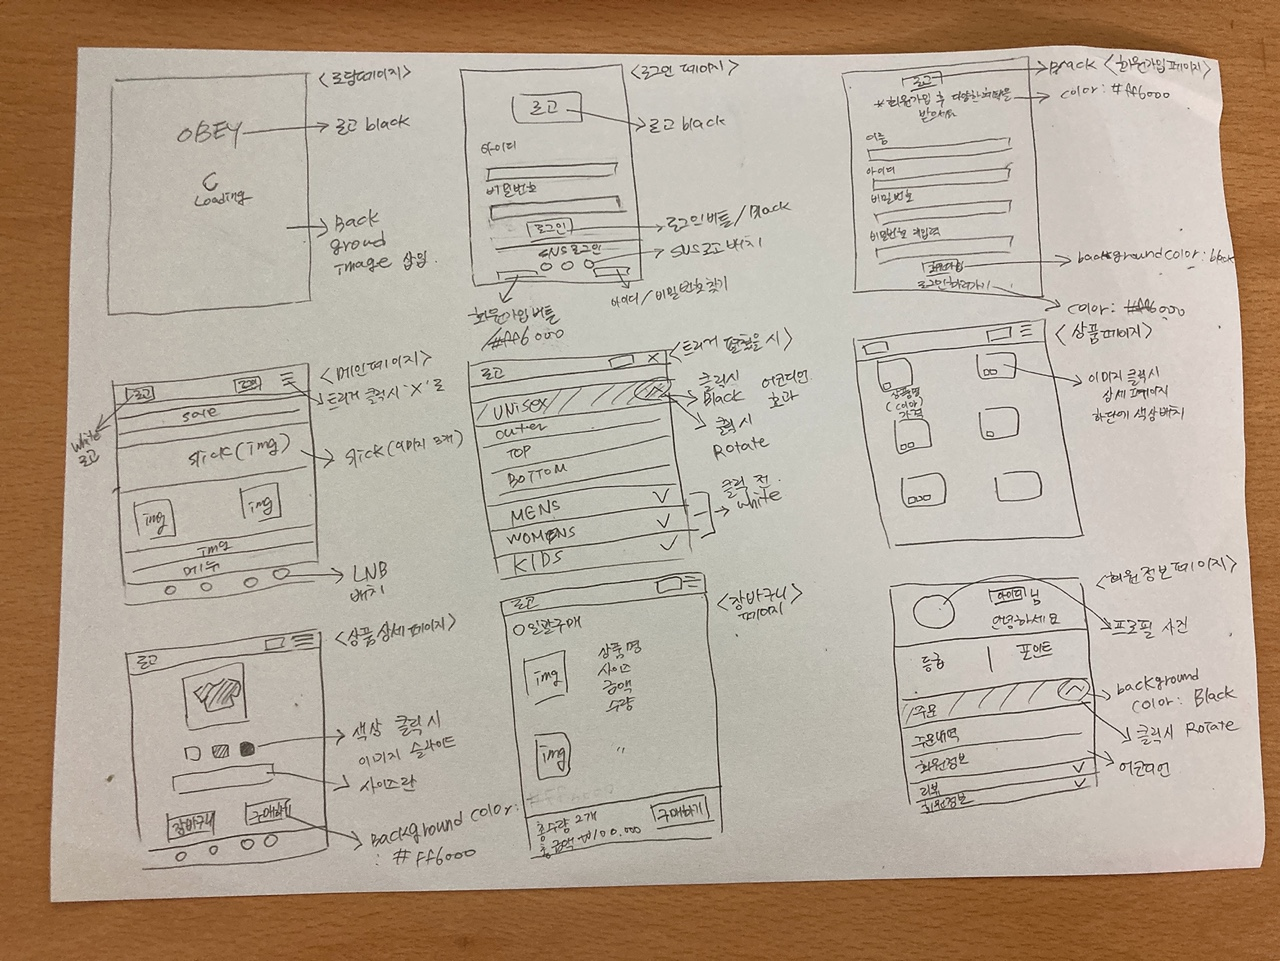 <로딩페이지>
OBEY
로고 black
Loading
Back
ground
image 삽입
<로그인 페이지>
로고
로고 black
아이디
비밀번호
로그인
로그인버튼/Black
SNS로그인
SNS로고 배치
아이디/비밀번호찾기
회원가입버튼
#ff6000
<회원가입페이지>
로고
Black
*회원가입 후 다양한 혜택을
받으세요
color: #ff6000
이름
아이디
비밀번호
비밀번호 재입력
회원가입
background color: black
로그인하러가기
color: #ff6000
<메인페이지>
로고
white
로고
트리거 클릭시 'X'로
sale
slick(img)
slick(이미지 3개)
img
img
img
메뉴
LNB
배치
<트리거 클릭했을 시
로고
X
UNISEX
클릭시
Black 어코디언
효과
클릭시
Rotate
outer
TOP
BOTTOM
MENS
WOMENS
KIDS
클릭 전
white
<상품페이지>
상품명
(color)
가격
이미지 클릭시
상세페이지
하단에 색상배치
<상품 상세 페이지>
로고
색상 클릭시
이미지 슬라이드
사이즈란
장바구니
구매하기
Background color:
: #ff6000
<장바구니
페이지>
로고
일괄구매
img
상품명
사이즈
금액
수량
img
"
총수량 2개
총금액 ₩100.000
구매하기
<회원정보페이지>
아이디 님
안녕하세요
프로필 사진
등급
포인트
주문
background
color: Black
클릭시 Rotate
주문내역
회원정보
어코디언
리뷰
회원정보